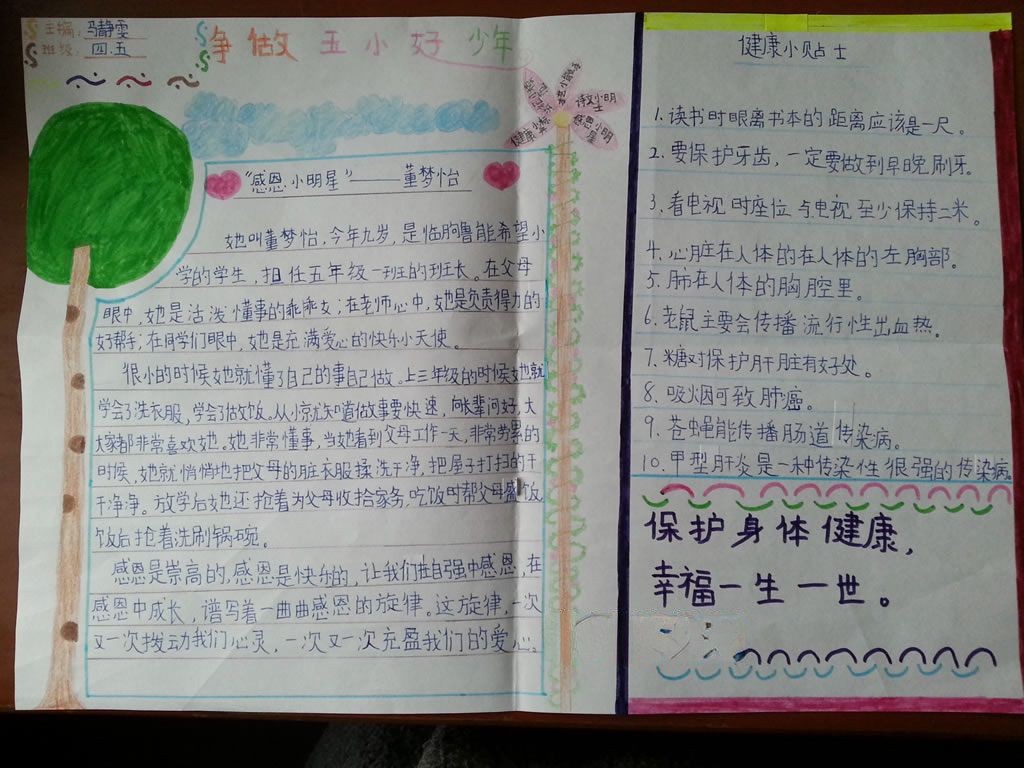 主编：马静雯
班级：四.五
争做五小好少年
诗文小明士
感恩小明星
"感恩小明星"——董梦怡
她叫董梦怡，今年九岁，是临朐鲁能希望小
学的学生，担任五年级一班的班长。在父母
眼中，她是活泼懂事的乖乖女；在老师心中，她是负责得力的
好帮手；在同学们眼中，她是充满爱心的快乐小天使。
很小的时候她就懂了自己的事自己做。上三年级的时候她就
学会了洗衣服，学会了做饭。从小就知道做事要快速，向长辈问好，大
大家都非常喜欢她。她非常懂事，当她看到父母工作一天，非常劳累的
时候，她就悄悄地把父母的脏衣服揉洗干净，把屋子打扫的干
干净净。放学后她还抢着为父母收拾家务，吃饭时帮父母盛饭，
饭后抢着洗刷锅碗。
感恩是崇高的，感恩是快乐的，让我们在自强中感恩，在
感恩中成长，谱写着一曲曲感恩的旋律。这旋律，一次
又一次拨动我们心灵，一次又一次充盈我们的爱心。
健康小贴士
1.读书时眼离书本的距离应该是一尺。
2.要保护牙齿，一定要做到早晚刷牙。
3.看电视时座位与电视至少保持二米。
4.心脏在人体的在人体的左胸部。
5.肺在人体的胸腔里。
6.老鼠主要会传播流行性出血热。
7.糖对保护肝脏有好处。
8.吸烟可致肺癌。
9.苍蝇能传播肠道传染病。
10.甲型肝炎是一种传染性很强的传染病。
保护身体健康，
幸福一生一世。